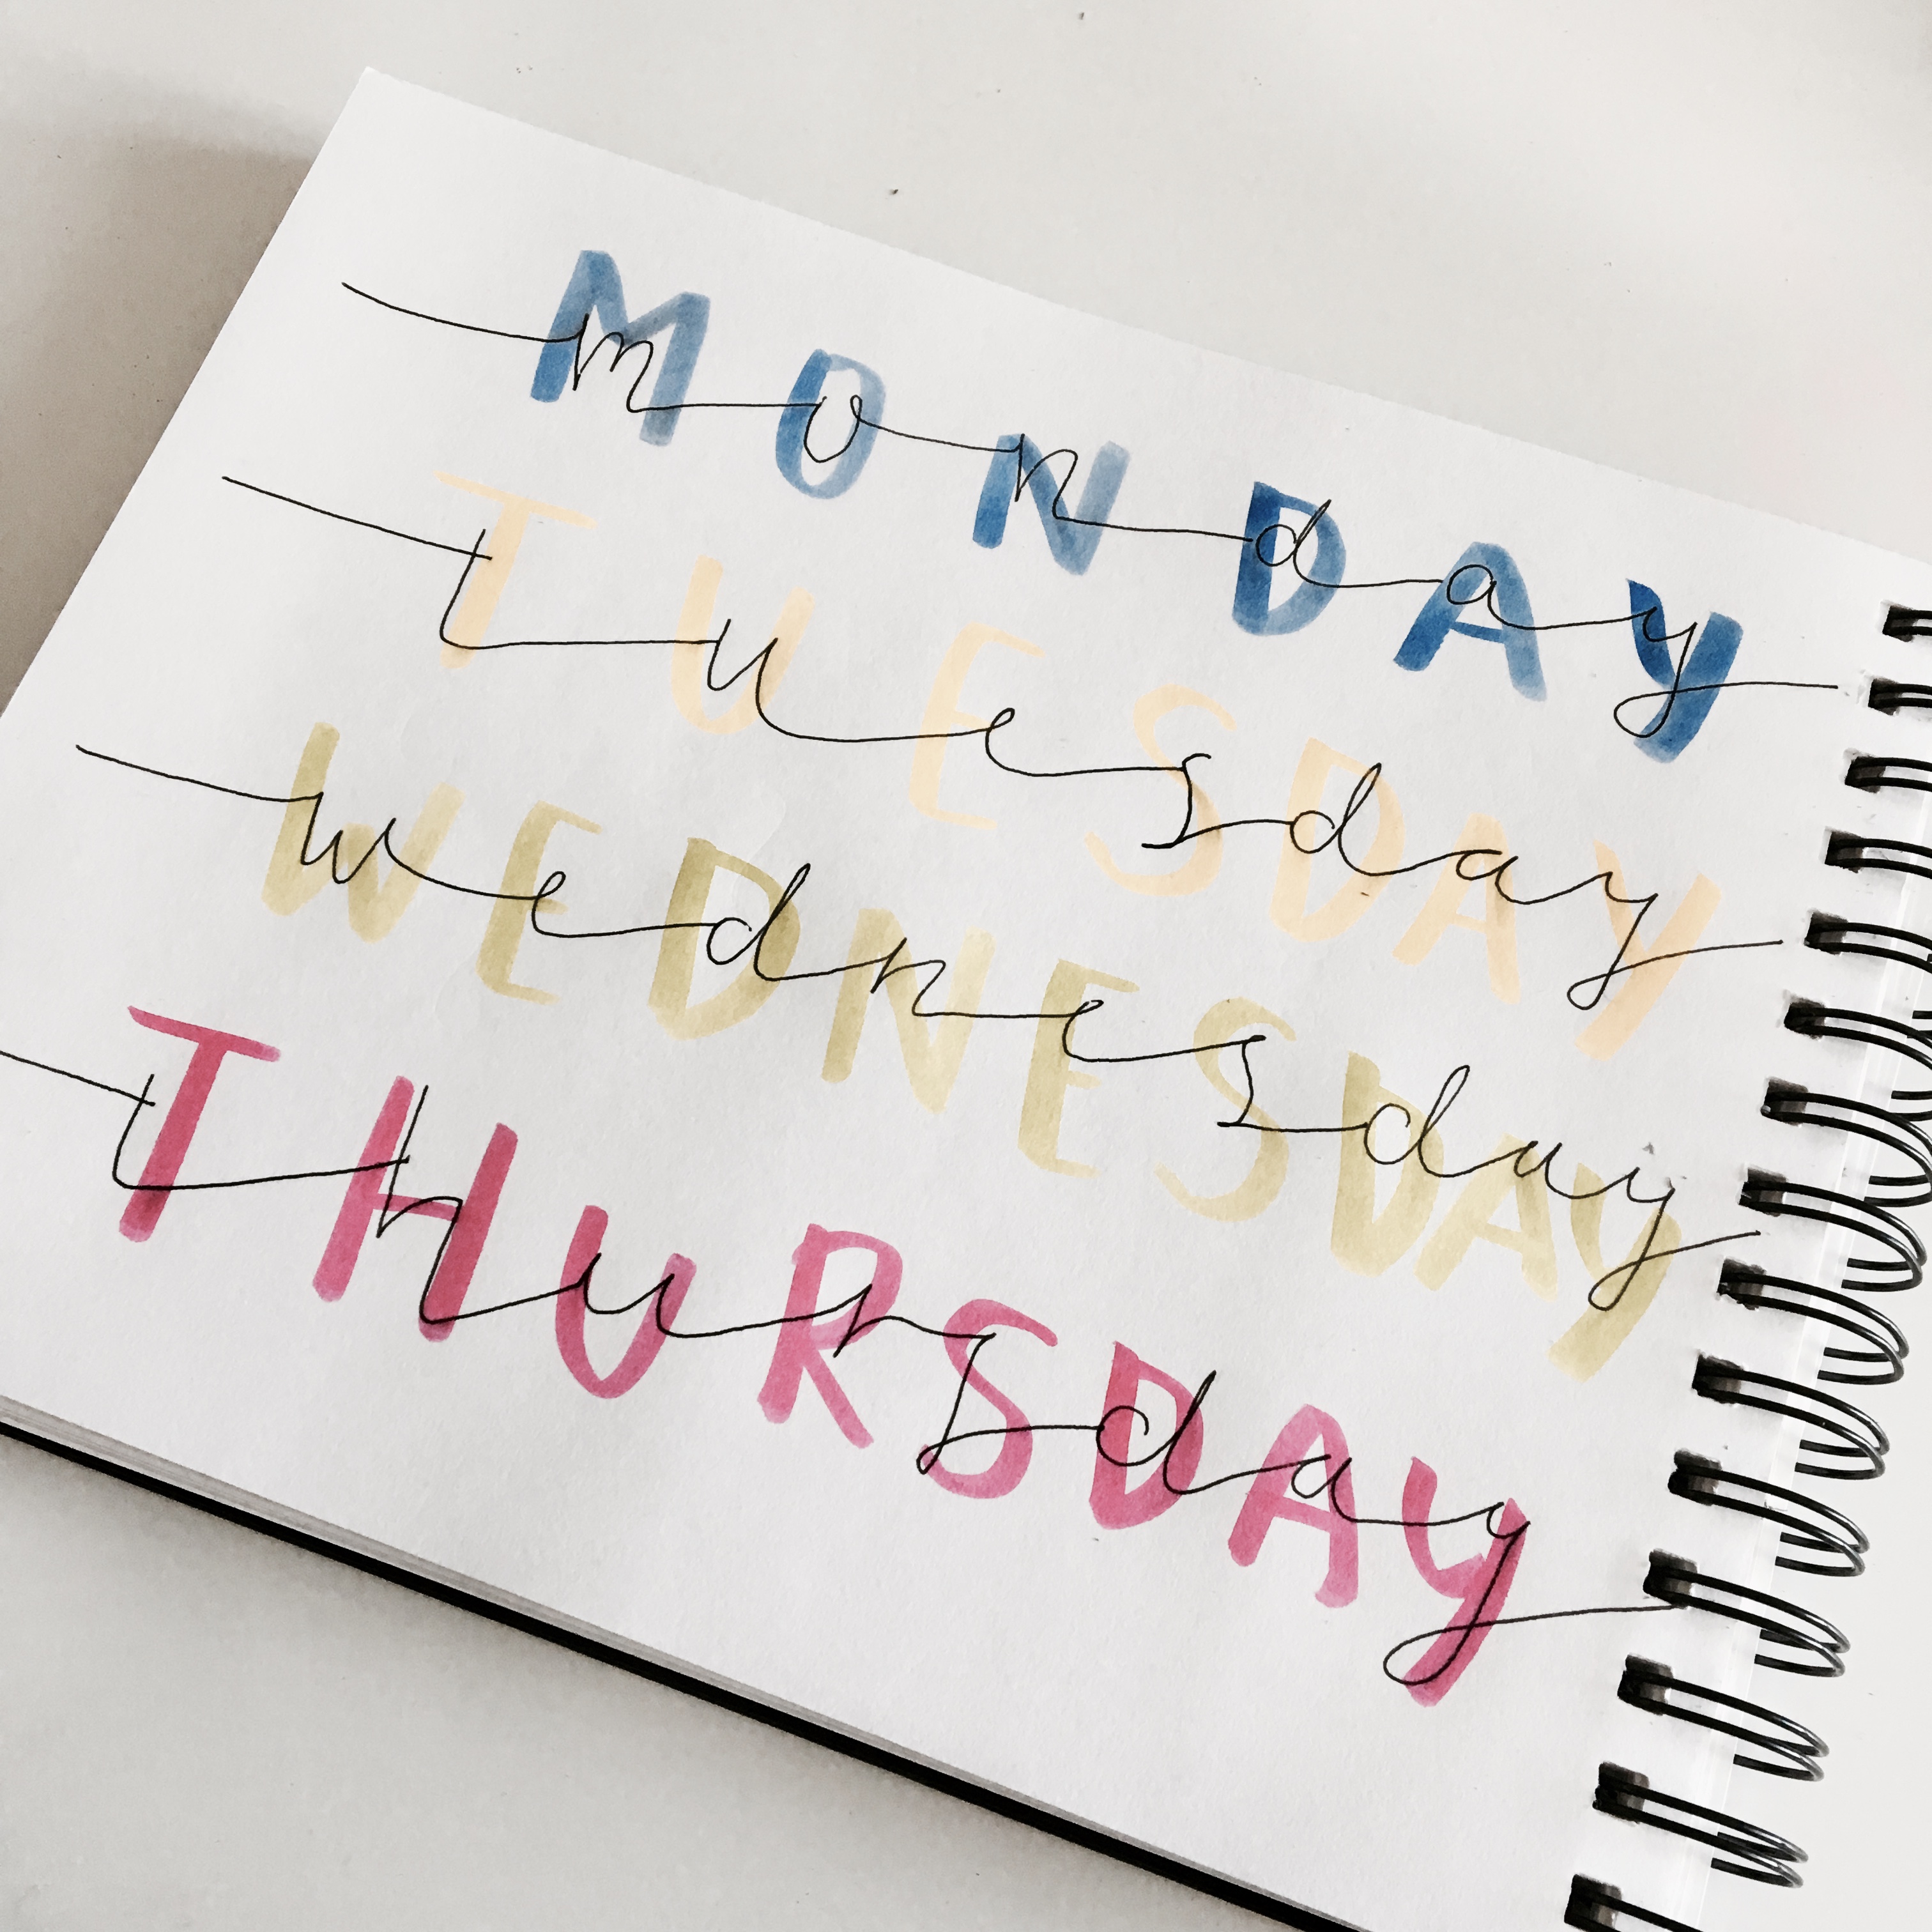 MONDAY
monday
TUESDAY
tuesday
WEDNESDAY
wednesday
THURSDAY
thursday